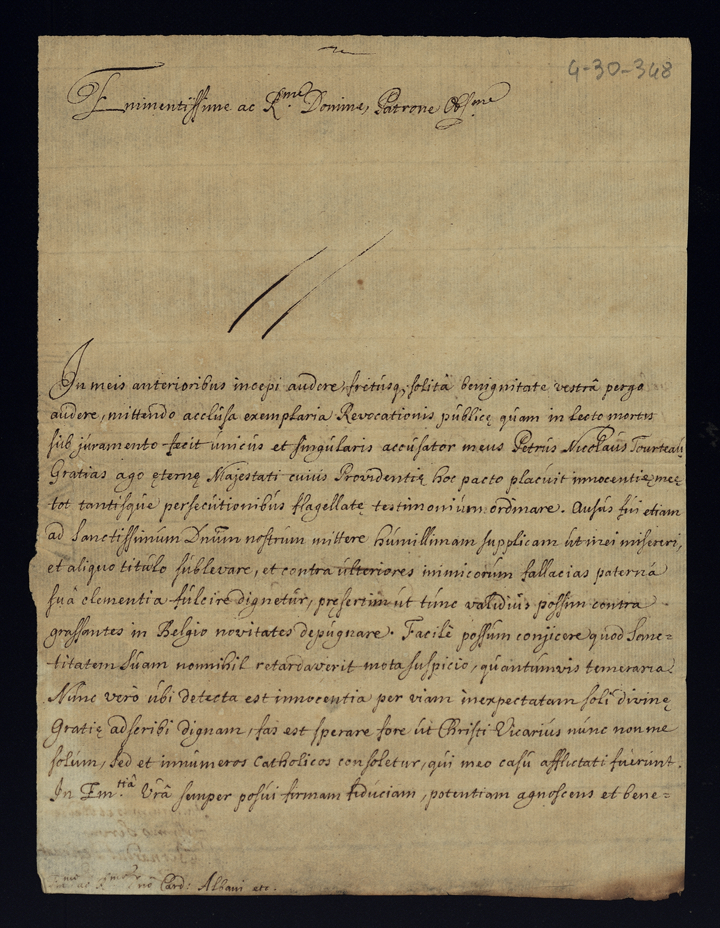 4-30-348
Eminentissime ac R.me Domine, Patrone Obs.me
In meis anterioribus incepi audere, fretusq; solitâ benignitate vestrâ pergo
audere, mittendo acclusa exemplaria Revocationis publicę quam in lecto mortis
sub juramento fecit unicus et singularis accusator meus Petrus Nicolaus Tourteau
Gratias ago ęternę Majestati cuius Providentię hoc pacto placuit innocentię męę
tot tantisque persecutionibus flagellatę testimonium ordinare. Ausus fui etiam
ad Sanctissimum Dnūm nostrum mittere humillimam supplicam ut mei misereri,
et aliquo titulo sublevare, et contra ulteriores inimicorum fallacias paternâ
suâ clementia fulcire dignetur, pręsertim ut tunc validius possim contra
grassantes in Belgio novitates depugnare. Facilè possum conjicere quod Sanc=
titatem Suam nonnihil retardaverit mota suspicio, quantumvis temeraria.
Nunc verò ubi detecta est innocentia per viam inexpectatam soli divinę
Gratię adscribi dignam, fas est sperare fore ut Christi Vicarius nunc non me
solùm, sed et innumeros Catholicos consoletur, qui meo casu afflictati fuerunt.
In Em.tiâ Vrâ semper posui firmam fiduciam, potentiam agnoscens et bene=
no Card: Albani etc.